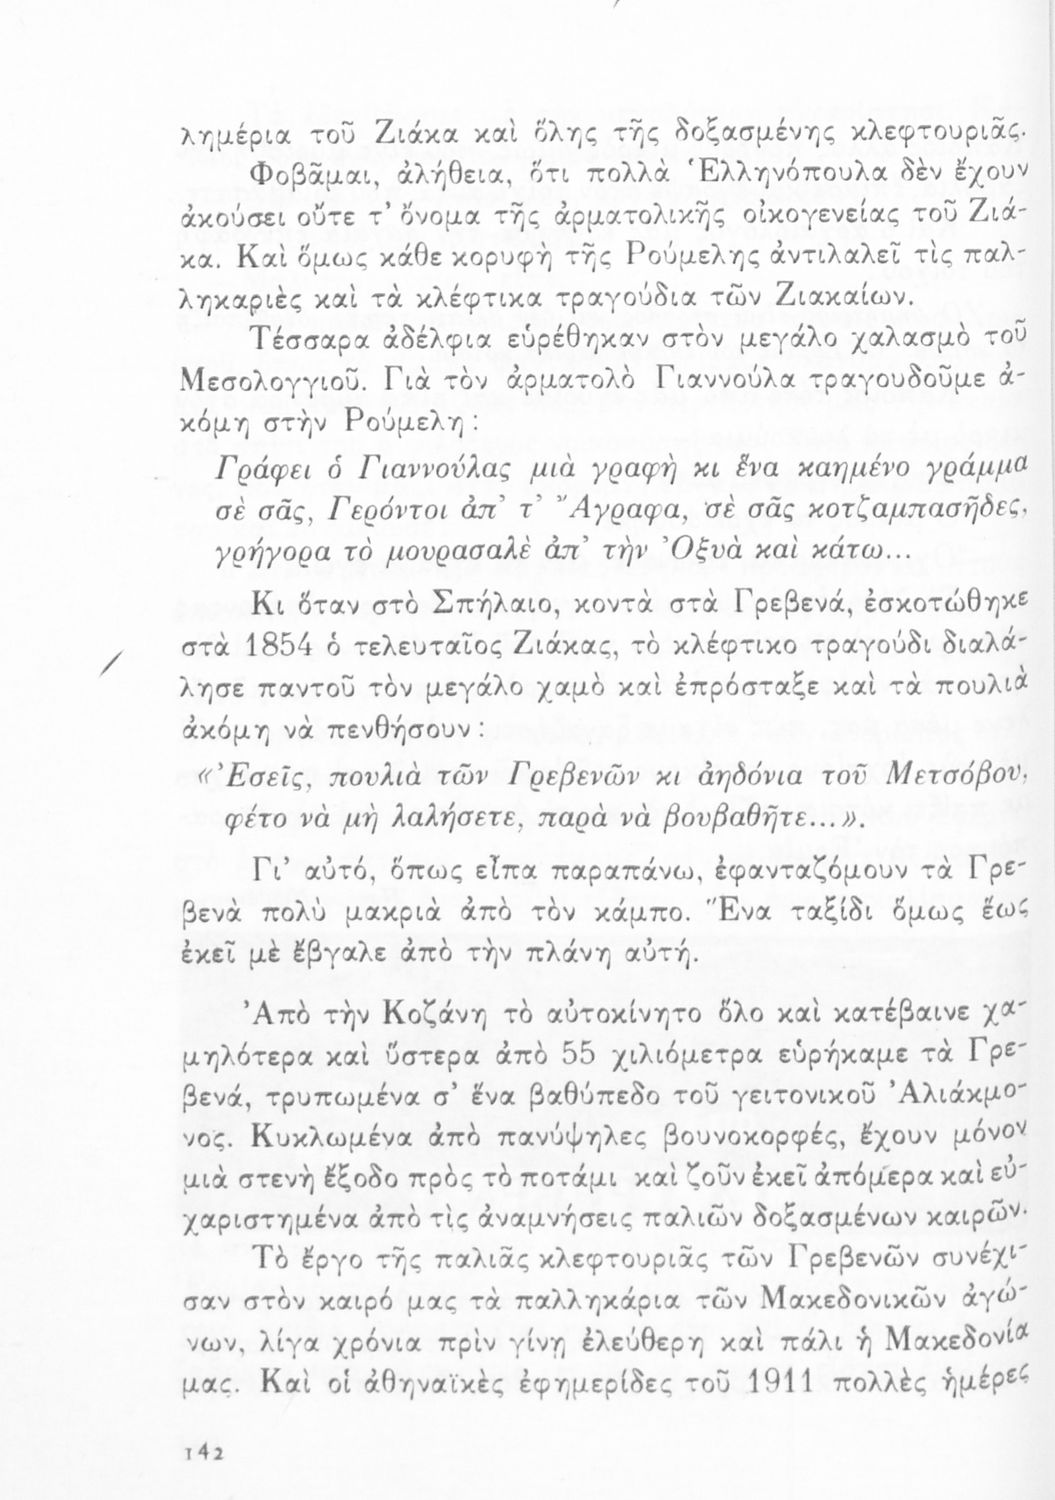 λημέρια τοῦ Ζιάκα καὶ ὅλης τῆς δοξασμένης κλεφτουριᾶς.
Φοβᾶμαι, ἀλήθεια, ὅτι πολλὰ Ἑλληνόπουλα δὲν ἔχουν
ἀκούσει οὔτε τ’ ὄνομα τῆς ἀρματολικῆς οἰκογενείας τοῦ Ζιά-
κα. Καὶ ὅμως κάθε κορυφὴ τῆς Ρούμελης ἀντιλαλεῖ τὶς παλ-
ληκαριὲς καὶ τὰ κλέφτικα τραγούδια τῶν Ζιακαίων.
Τέσσαρα ἀδέλφια εὑρέθηκαν στὸν μεγάλο χαλασμὸ τοῦ
Μεσολογγιοῦ. Γιὰ τὸν ἀρματολὸ Γιαννούλα τραγουδοῦμε ἀ-
κόμη στὴν Ρούμελη :
Γράφει ὁ Γιαννούλας μιὰ γραφὴ κι ἕνα καημένο γράμμα
σὲ σᾶς, Γερόντοι ἀπ’ τ’ Ἄγραφα, σὲ σᾶς κοτζαμπασῆδες,
γρήγορα τὸ μουρασαλὲ ἀπ’ τὴν Ὀξυὰ καὶ κάτω...
Κι ὅταν στὸ Σπήλαιο, κοντὰ στὰ Γρεβενά, ἐσκοτώθηκε
στὰ 1854 ὁ τελευταῖος Ζιάκας, τὸ κλέφτικο τραγούδι διαλά-
λησε παντοῦ τὸν μεγάλο χαμὸ καὶ ἐπρόσταξε καὶ τὰ πουλιὰ
ἀκόμη νὰ πενθήσουν :
«Ἐσεῖς, πουλιὰ τῶν Γρεβενῶν κι ἀηδόνια τοῦ Μετσόβου,
φέτο νὰ μὴ λαλήσετε, παρὰ νὰ βουβαθῆτε...».
Γι’ αὐτό, ὅπως εἶπα παραπάνω, ἐφανταζόμουν τὰ Γρε-
βενὰ πολὺ μακριὰ ἀπὸ τὸν κάμπο. Ἕνα ταξίδι ὅμως ἕως
ἐκεῖ μὲ ἔβγαλε ἀπὸ τὴν πλάνη αὐτή.
Ἀπὸ τὴν Κοζάνη τὸ αὐτοκίνητο ὅλο καὶ κατέβαινε χα-
μηλότερα καὶ ὕστερα ἀπὸ 55 χιλιόμετρα εὑρήκαμε τὰ Γρε-
βενά, τρυπωμένα σ’ ἕνα βαθύπεδο τοῦ γειτονικοῦ Ἀλιάκμο-
νος. Κυκλωμένα ἀπὸ πανύψηλες βουνοκορφές, ἔχουν μόνον
μιὰ στενὴ ἔξοδο πρὸς τὸ ποτάμι καὶ ζοῦν ἐκεῖ ἀπόμερα καὶ εὐ-
χαριστημένα ἀπὸ τὶς ἀναμνήσεις παλιῶν δοξασμένων καιρῶν.
Τὸ ἔργο τῆς παλιᾶς κλεφτουριᾶς τῶν Γρεβενῶν συνέχι-
σαν στὸν καιρό μας τὰ παλληκάρια τῶν Μακεδονικῶν ἀγώ-
νων, λίγα χρόνια πρὶν γίνῃ ἐλεύθερη καὶ πάλι ἡ Μακεδονία
μας. Καὶ οἱ ἀθηναϊκὲς ἐφημερίδες τοῦ 1911 πολλὲς ἡμέρες
142